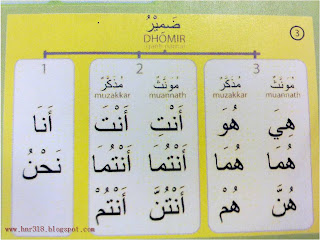 ضَمِيْرٌ
DHOMIR
3
1 2 3
مُذَكَّرٌ مُؤَنَّثٌ مُذَكَّرٌ مُؤَنَّثٌ
muzakkar muannath muzakkar muannath
أَنَا أَنْتَ أَنْتِ هُوَ هِيَ
نَحْنُ أَنْتُمَا أَنْتُمَا هُمَا هُمَا
أَنْتُمْ أَنْتُنَّ هُمْ هُنَّ
www.har318.blogspot.com